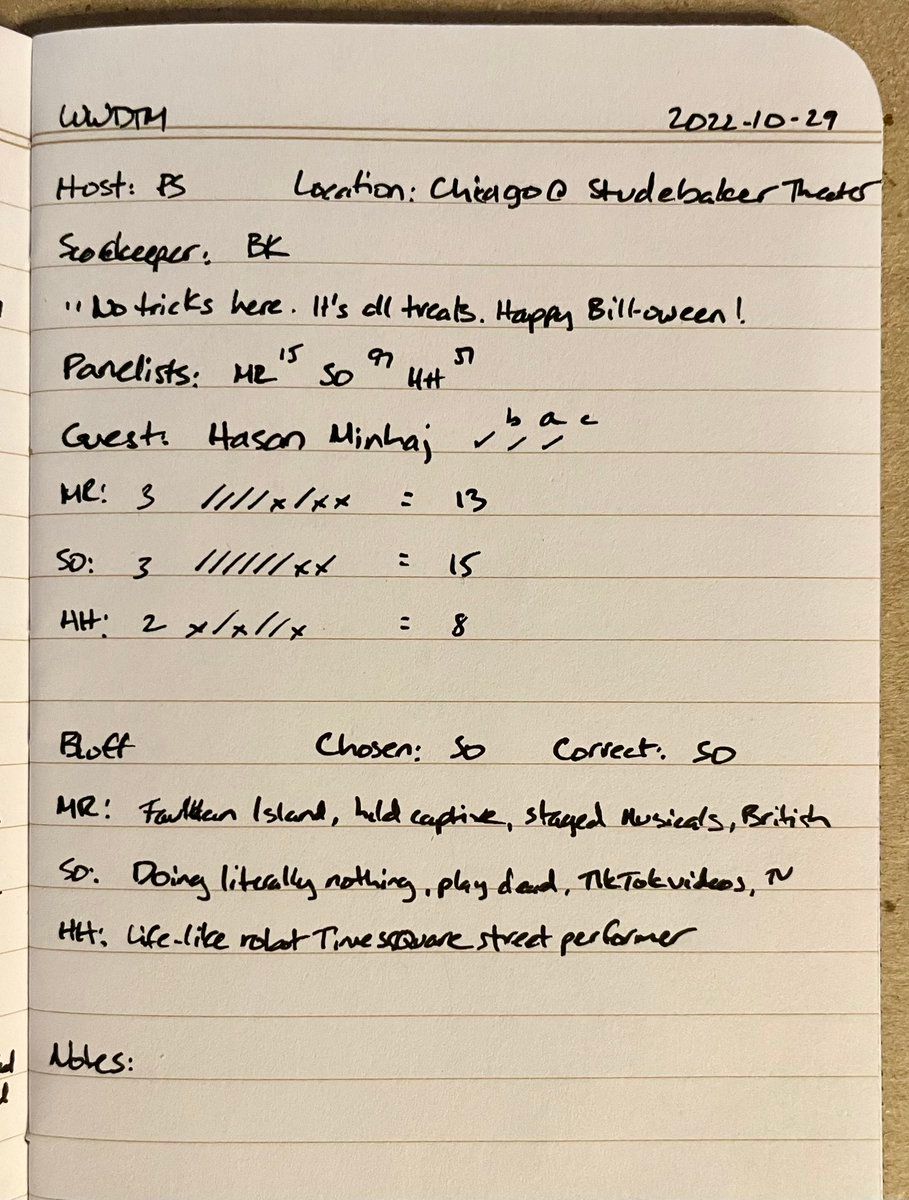 WWDTM 2022-10-29
Host: PS Location: Chicago @ Studebaker Theater
Scorekeeper: BK
"No tricks here. It's all treats. Happy Bill-oween!
Panelists: MR 15 SO 97 HH 51
Guest: Hasan Minhaj ✓ / / b a c
MR: 3 ////x/xx = 13
SO: 3 //////xx = 15
HH: 2 x/x//x = 8
Bluff Chosen: SO Correct: SO
MR: Island, held captive, staged Musicals, British
SO: Doing literally nothing, play dead, TikTok videos, TV
HH: Life-like robot Time square street performer
Notes: